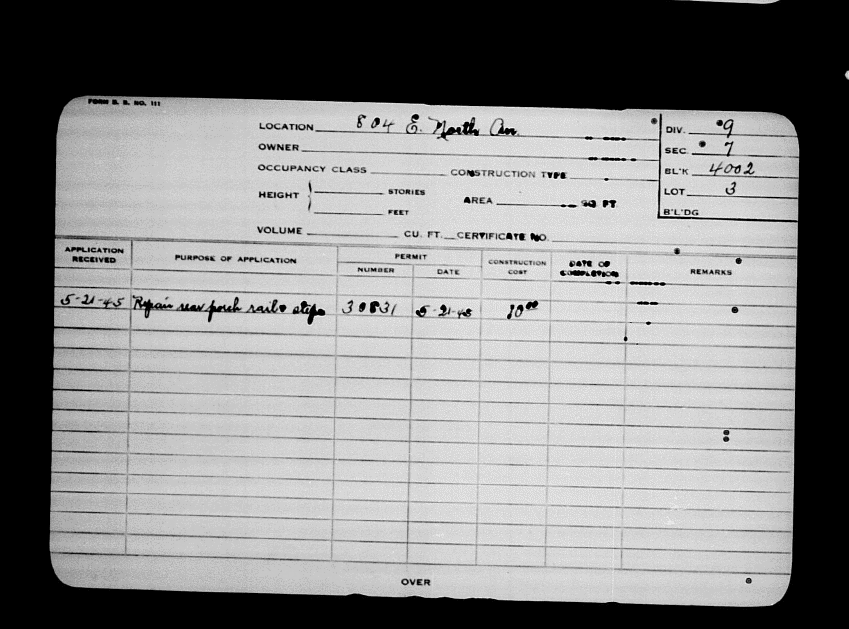 FORM B. B. NO. 111
LOCATION 804 E. North Av.
OWNER
OCCUPANCY CLASS CONSTRUCTION TYPE
HEIGHT STORIES AREA SQ FT
FEET
VOLUME CU. FT. CERTIFICATE NO.
DIV. 9
SEC. 7
BL'K 4002
LOT 3
B'L'DG
APPLICATION RECEIVED PURPOSE OF APPLICATION PERMIT NUMBER DATE CONSTRUCTION COST DATE OF COMPLETION REMARKS
5-21-45 Repair rear porch rail & steps 5-21-45 10 00
OVER